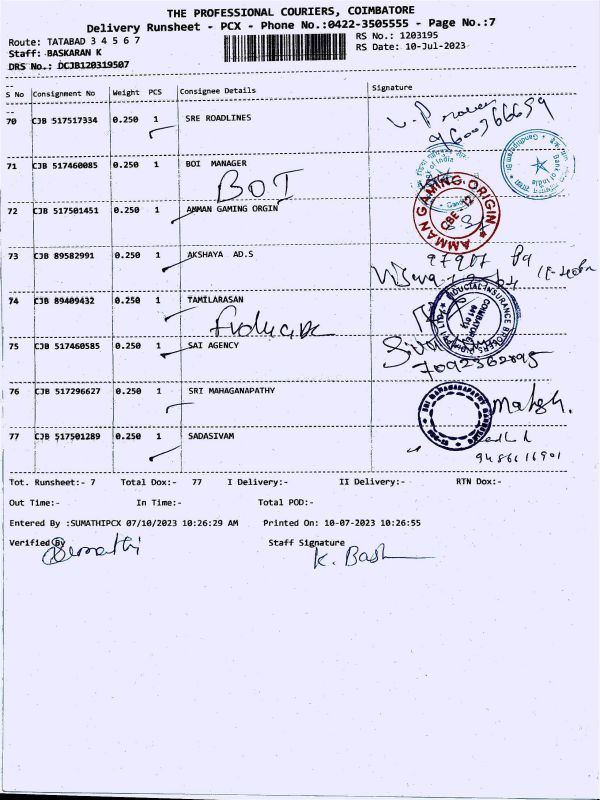 THE PROFESSIONAL COURIERS, COIMBATORE
Delivery Runsheet - PCX - Phone No.:0422-3505555 - Page No.:7
Route: TATABAD 3 4 5 6 7
RS No.: 1203195
Staff: BASKARAN K
RS Date: 10-Jul-2023
DRS No.: DCJB120319507
S No Consignment No Weight PCS Consignee Details Signature
70 CJB 517517334 0.250 1 SRE ROADLINES
9600366659
71 CJB 517460085 0.250 1 BOI MANAGER
BOI
72 CJB 517501451 0.250 1 AMMAN GAMING ORGIN
AMMAN GAMING ORIGIN
CBE - 12
73 CJB 89582991 0.250 1 AKSHAYA AD.S
74 CJB 89409432 0.250 1 TAMILARASAN
75 CJB 517460585 0.250 1 SAI AGENCY
7092362895
76 CJB 517296627 0.250 1 SRI MAHAGANAPATHY
77 CJB 517501289 0.250 1 SADASIVAM
9486616901
Tot. Runsheet:- 7 Total Dox:- 77 I Delivery:- II Delivery:- RTN Dox:-
Out Time:- In Time:- Total POD:-
Entered By :SUMATHIPCX 07/10/2023 10:26:29 AM Printed On: 10-07-2023 10:26:55
Verified By Staff Signature
K. Bash